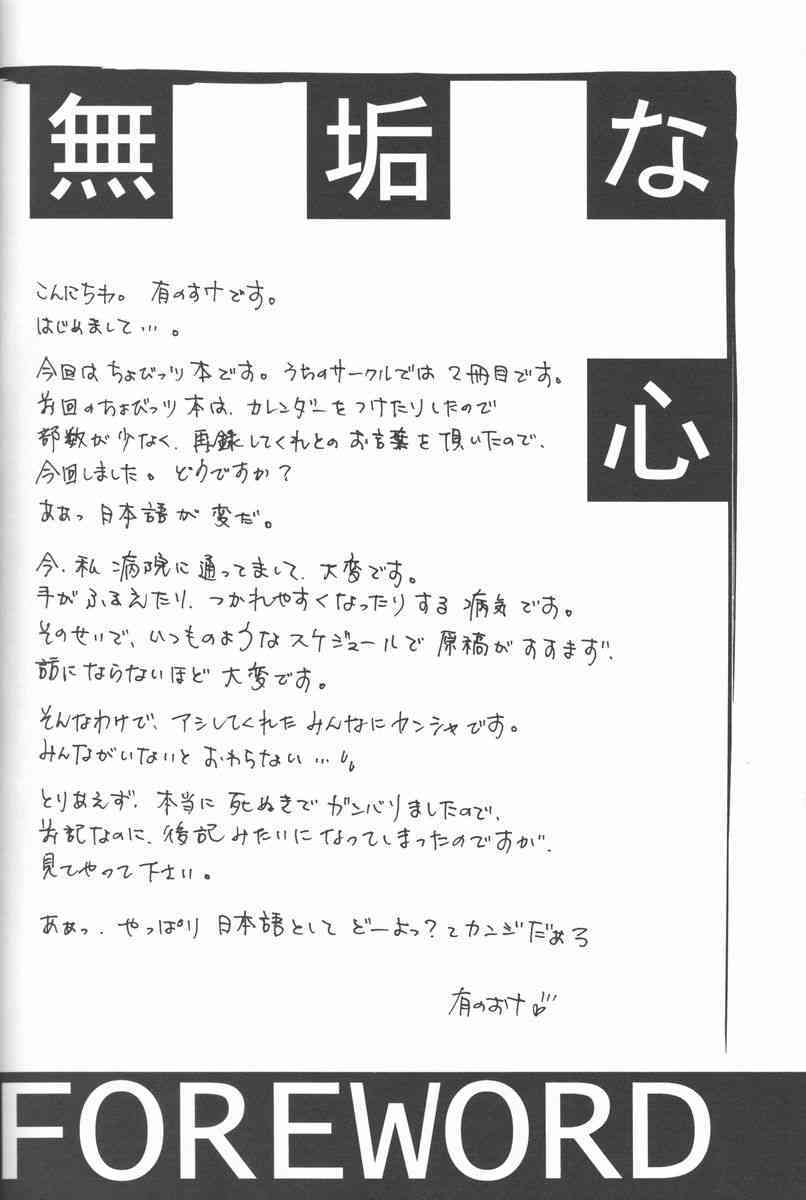 無垢な
心
こんにちわ。有のすけです。
はじめまして…。
今回はちょびっツ本です。うちのサークルでは2冊目です。
前回のちょびっツ本は、カレンダーをつけたりしたので
部数が少なく、再録してくれとのお言葉を頂いたので、
今回しました。どうですか?
ああっ日本語が変だ。
今、私病院に通ってまして、大変です。
手がふるえたり、つかれやすくなったりする病気です。
そのせいで、いつものようなスケジュールで原稿がすすまず、
話にならないほど大変です。
そんなわけで、アシしてくれたみんなにカンシャです。
みんながいないとおわらない…
とりあえず、本当に死ぬきでガンバリましたので、
前記なのに、後記みたいになってしまったのですが、
見てやって下さい。
ああっ、やっぱり日本語としてどーよっ?てカンジだぁろ
有のすけ
FOREWORD